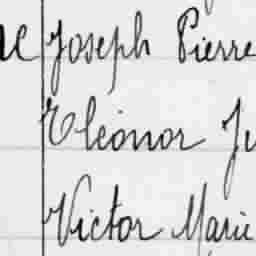 Joseph Pierre
Eléonor Ju
Victor Marie